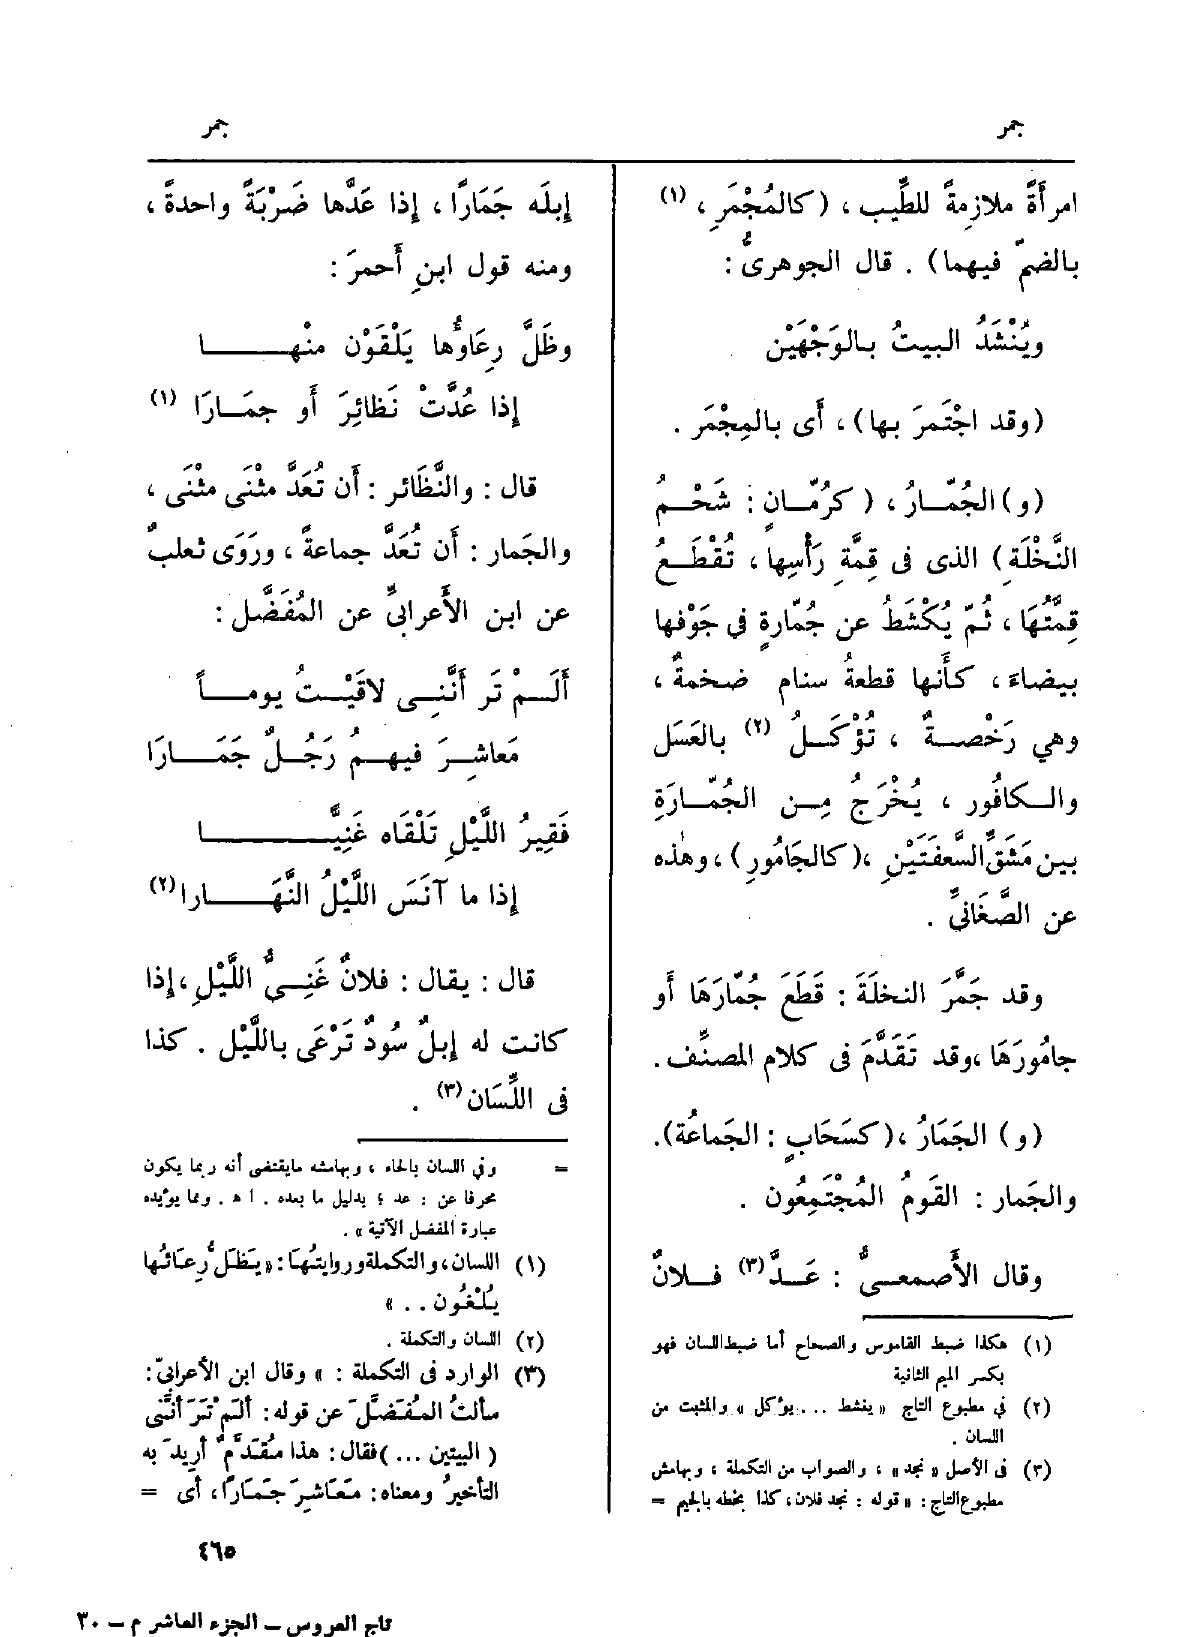 جمر
جمر
امرأَةً ملازِمةً للطِّيب ، (كالمُجْمَرِ ، (١)
بالضمّ فيهما) . قال الجوهرىُّ :
ويُنْشَدُ البيتُ بالوَجْهَيْن
(وقد اجْتَمرَ بها) ، أَى بالمِجْمَر .
(و) الجُمّـارُ ، ( كرُمّـانٍ : شَحْـمُ
النَّخْلَة) الذى فى قِمَّةِ رَأْسِها ، تُقْطَـعُ
قِمَّتُهَا ، ثُمّ يُكْشَطُ عن جُمّارةٍ في جَوْفها
بيضاءَ ، كأَنها قطعةُ سنام ضخمةٌ ،
وهي رَخْصـةٌ ، تُؤْكَـلُ (٢) بالعَسَل
والـكافُور ، يُخْرَجُ مِـن الجُمّـارَةِ
بين مَشَقِّ السَّعفَتَيْنِ ،(كالجَامُورِ) ، وهٰذه
عن الصَّغَانىِّ .
وقد جَمَّرَ النخلَةَ : قَطَعَ جُمّارَهَا أَو
جامُورَهَا ،وقد تَقَدَّمَ فى كلام المصنِّف .
(و) الجَمَارُ ،(كسَحَابٍ : الجَماعُة).
والجَمار : القَومُ المُجْتَمِعُون .
وقال الأَصمعـىُّ : عَـدَّ (٣) فـلانٌ
(١) هكذا ضبط القاموس والصحاح أما ضبط اللسان فهو
بكسر الميم الثانية
(٢) في مطبوع التاج « ينشط ... يؤكل » والمثبت من
اللسان .
(٣) فى الأصل « نجد » ، والصواب من التكملة ، وبهامش
مطبوع التاج : « قوله : نجد فلان، كذا بخطه بالجيم =
إبلَه جَمَارًا ، إذا عَدَّها ضَرْبَةً واحدةً ،
ومنه قول ابنِ أَحمرَ :
وظَلَّ رِعَاوُها يَلْقَوْن منْهـــا
إِذا عُدَّتْ نَظائِرَ أَو جمَـارَا (١)
قال : والنَّظَائر : أَن تُعَدَّ مثْنَى مثْنَى ،
والجَمار : أَن تُعَدَّ جماعةً ، ورَوَى ثعلبٌ
عن ابن الأَعرابىِّ عن المُفَضَّل :
أَلَـمْ تَر أَنَّنِـى لاقَيْـتُ يومـاً
مَعاشِـرَ فيهـمُ رَجُـلٌ جَمَـارَا
فَقِيرُ اللَّيْلِ تَلْقَاه غَنِيًّـــا
إذا ما آنَسَ اللَّيْلُ النَّهَـــارا (٢)
قال : يقال : فلانٌ غَنِـىُّ اللَّيْلِ ،إذا
كانت له إبلٌ سُودٌ تَرْعَى باللَّيْل . كذا
فى اللِّسَان (٣) .
= وفي اللسان بالحاء ، وبهامشه مايقتضى أنه ربما يكون
محرفا عن : عد ؛ بدليل ما بعده . ا ه . ومما يؤيده
عبارة المفضل الآتية » .
(١) اللسان، والتكملة وروايتُهَا: « يَظَلُّ رِعَائُها
يُلْغُون . . »
(٢) اللسان والتكملة .
(٣) الوارد فى التكملة : » وقال ابن الأعرابىّ:
سألتُ المُفَضَّلَ عن قوله: أَلَمْ تَرَ أنَّنى
( البيتين ... )فقال: هذا مُقَدَّمٌ أُريدَ به
التأخيرُ ومعناه: مَعَاشِرَ جَمَارًا، أى =
٤٦٥
تاج العروس – الجزء العاشر م – ٣٠